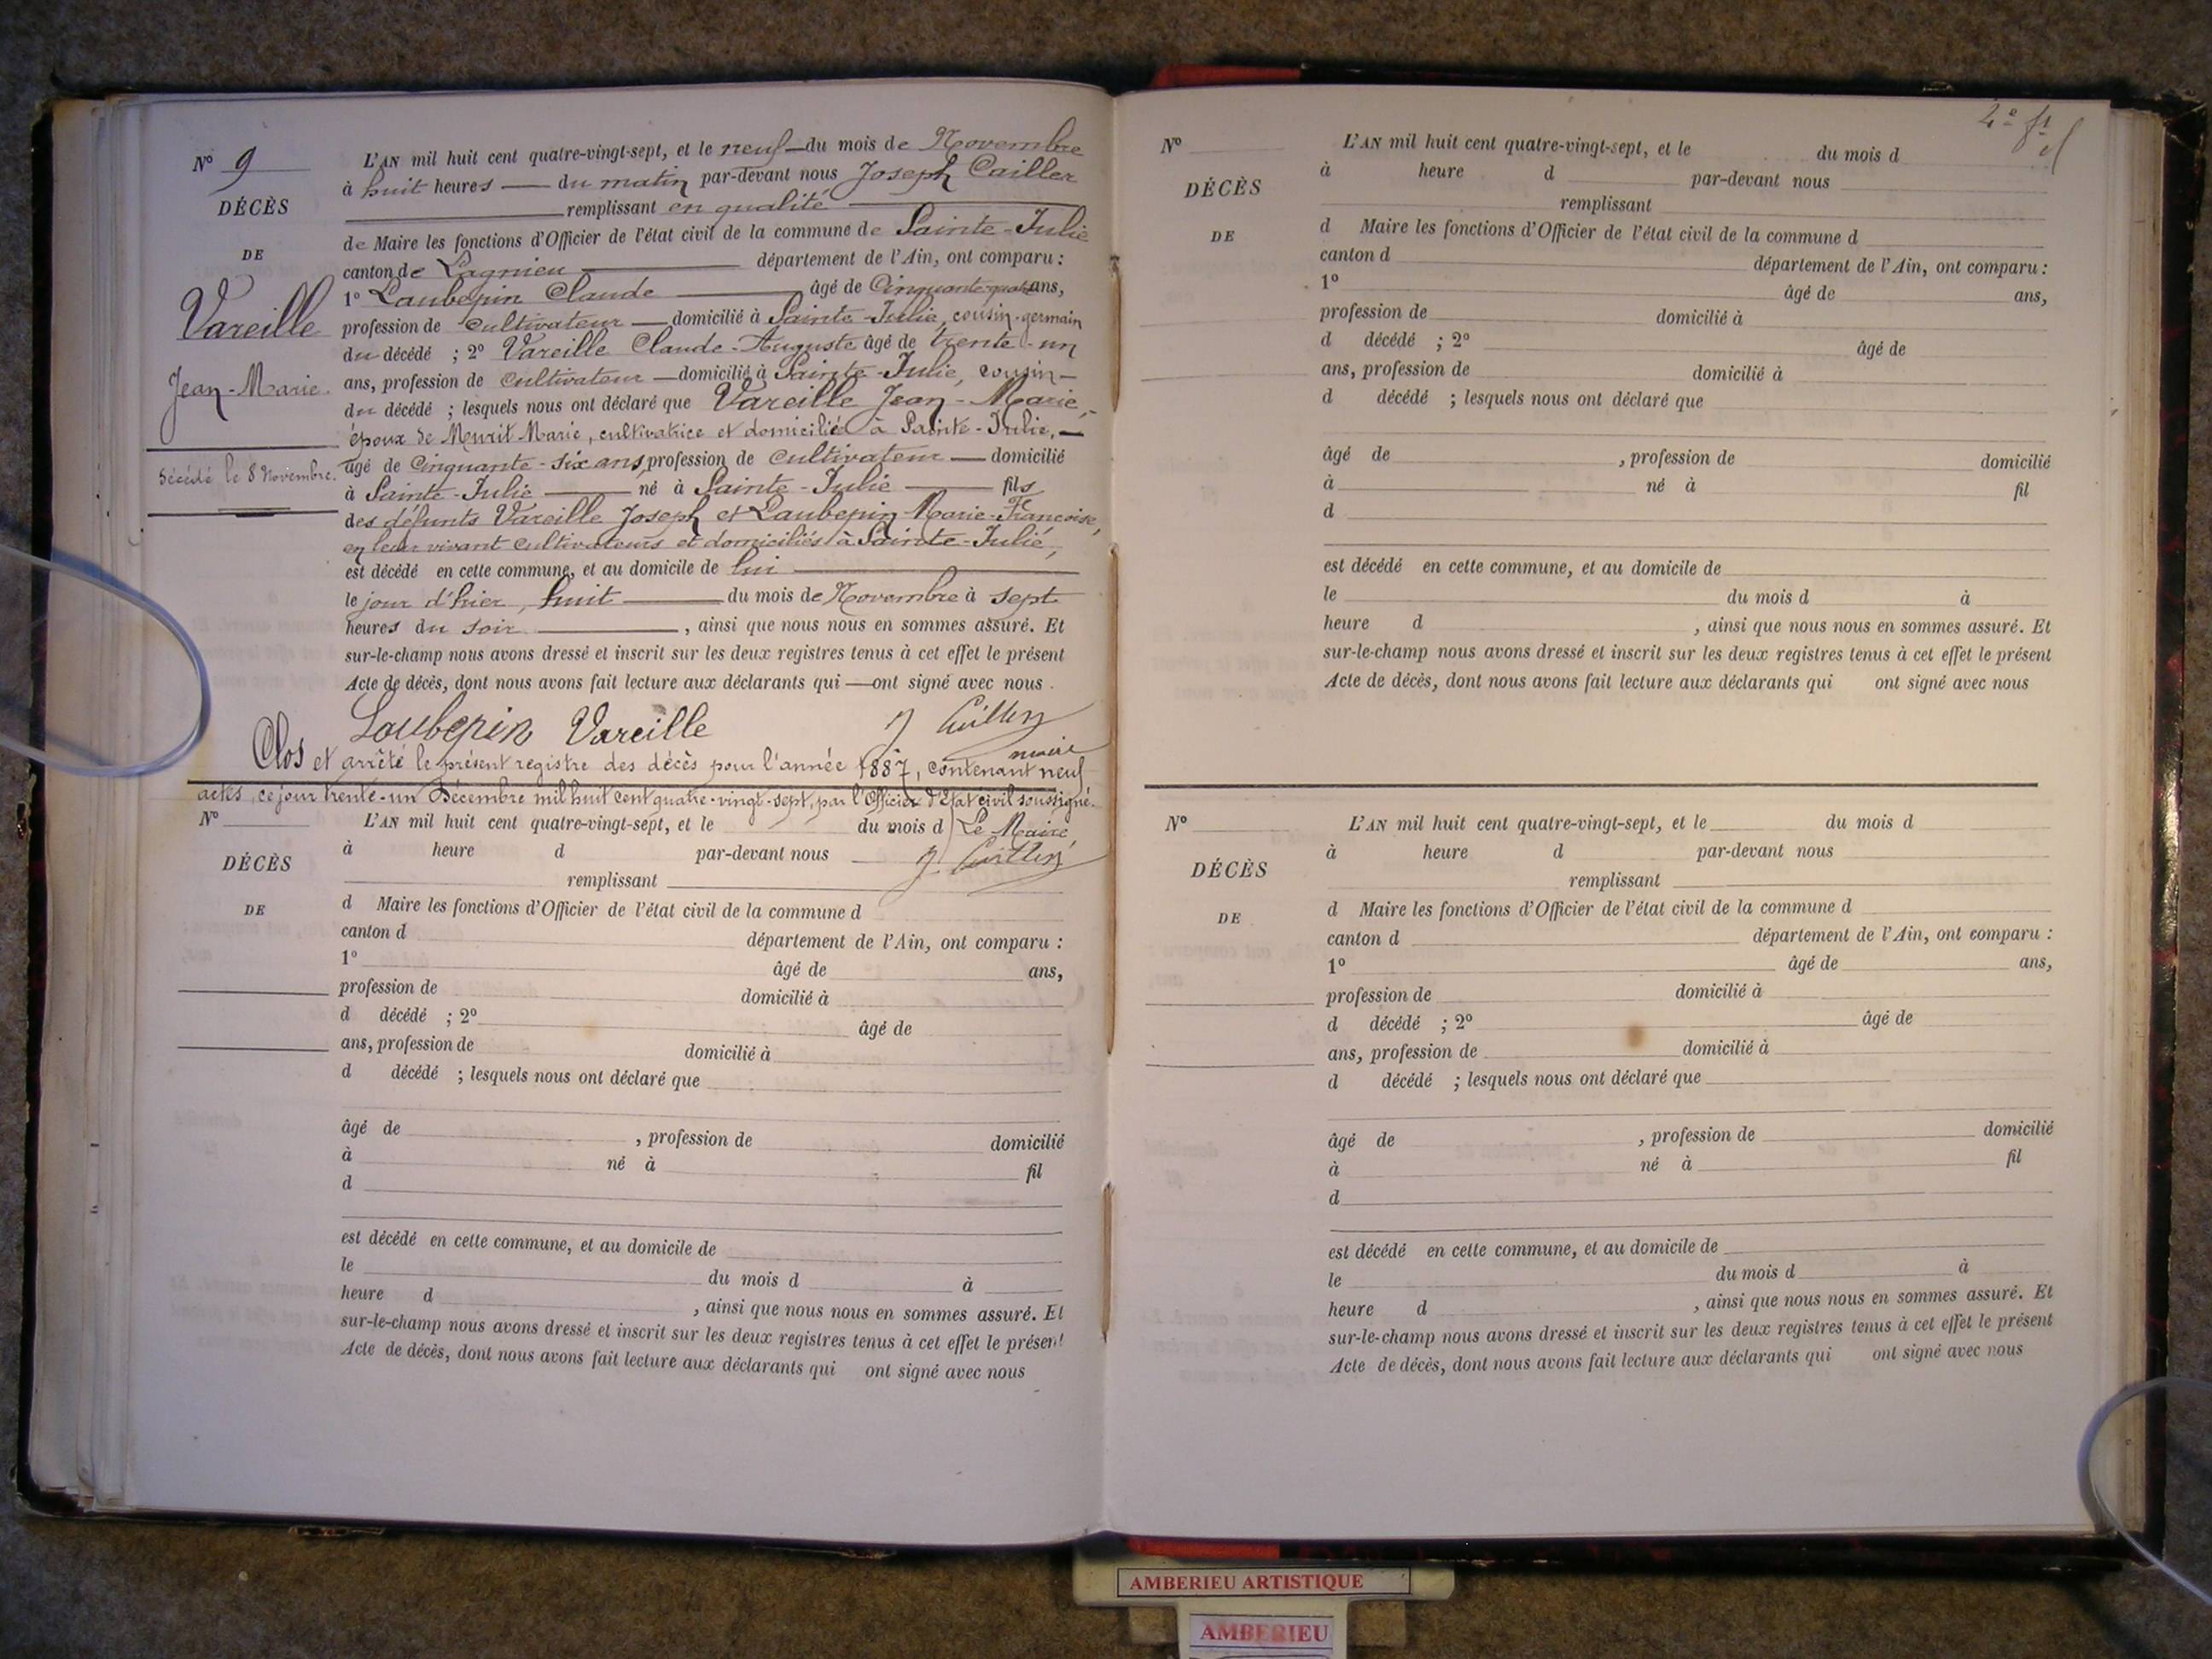 N° 9
DÉCÈS
DE
Vareille
Jean-Marie.
Décédé le 8 Novembre.
L'AN mil huit cent quatre-vingt-sept, et le neuf du mois de Novembre
à huit heures du matin par-devant nous Joseph Cailler
remplissant en qualité
de Maire les fonctions d'Officier de l'état civil de la commune de Sainte-Julie
canton de Lagnieu département de l'Ain, ont comparu :
1° Laubepin Claude âgé de Cinquante-quatre ans,
profession de cultivateur domicilié à Sainte-Julie, cousin-germain
du décédé ; 2° Vareille Claude-Auguste âgé de trente-un
ans, profession de cultivateur domicilié à Sainte-Julie, cousin
du décédé ; lesquels nous ont déclaré que Vareille Jean-Marie,
époux de Marie, cultivatrice et domiciliée à Sainte-Julie,
âgé de Cinquante-six ans, profession de cultivateur domicilié
à Sainte-Julie né à Sainte-Julie fils
des défunts Vareille Joseph et Laubepin Marie-Françoise,
en leur vivant cultivateurs et domiciliés à Sainte-Julie,
est décédé en cette commune, et au domicile de lui
le jour d'hier, huit du mois de Novembre à sept
heures du soir, ainsi que nous nous en sommes assuré. Et
sur-le-champ nous avons dressé et inscrit sur les deux registres tenus à cet effet le présent
Acte de décès, dont nous avons fait lecture aux déclarants qui ont signé avec nous.
Loubepin Vareille J Cailler
maire
Clos et arrêté le présent registre des décès pour l'année 1887, contenant neuf
actes, ce jour trente-un Décembre mil huit cent quatre-vingt-sept, par l'Officier d'Etat civil soussigné.
Le Maire
J. Cailler
N°
DÉCÈS
DE
L'AN mil huit cent quatre-vingt-sept, et le du mois d
à heure d par-devant nous
remplissant
d Maire les fonctions d'Officier de l'état civil de la commune d
canton d département de l'Ain, ont comparu :
1° âgé de ans,
profession de domicilié à
d décédé ; 2° âgé de
ans, profession de domicilié à
d décédé ; lesquels nous ont déclaré que
âgé de , profession de domicilié
à né à fil
d
est décédé en cette commune, et au domicile de
le du mois d à
heure d , ainsi que nous nous en sommes assuré. Et
sur-le-champ nous avons dressé et inscrit sur les deux registres tenus à cet effet le présent
Acte de décès, dont nous avons fait lecture aux déclarants qui ont signé avec nous
N°
DÉCÈS
DE
L'AN mil huit cent quatre-vingt-sept, et le du mois d
à heure d par-devant nous
remplissant
d Maire les fonctions d'Officier de l'état civil de la commune d
canton d département de l'Ain, ont comparu :
1° âgé de ans,
profession de domicilié à
d décédé ; 2° âgé de
ans, profession de domicilié à
d décédé ; lesquels nous ont déclaré que
âgé de , profession de domicilié
à né à fil
d
est décédé en cette commune, et au domicile de
le du mois d à
heure d , ainsi que nous nous en sommes assuré. Et
sur-le-champ nous avons dressé et inscrit sur les deux registres tenus à cet effet le présent
Acte de décès, dont nous avons fait lecture aux déclarants qui ont signé avec nous
N°
DÉCÈS
DE
L'AN mil huit cent quatre-vingt-sept, et le du mois d
à heure d par-devant nous
remplissant
d Maire les fonctions d'Officier de l'état civil de la commune d
canton d département de l'Ain, ont comparu :
1° âgé de ans,
profession de domicilié à
d décédé ; 2° âgé de
ans, profession de domicilié à
d décédé ; lesquels nous ont déclaré que
âgé de , profession de domicilié
à né à fil
d
est décédé en cette commune, et au domicile de
le du mois d à
heure d , ainsi que nous nous en sommes assuré. Et
sur-le-champ nous avons dressé et inscrit sur les deux registres tenus à cet effet le présent
Acte de décès, dont nous avons fait lecture aux déclarants qui ont signé avec nous
AMBERIEU ARTISTIQUE
AMBERIEU